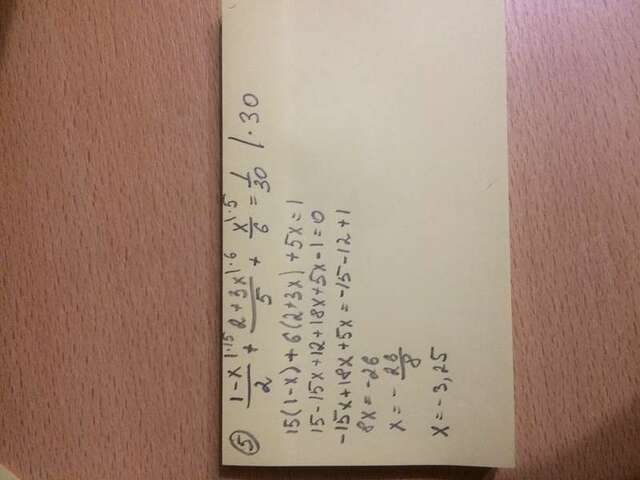 ⑤ (1-x)/2 |·15 + (2+3x)/5 |·6 + x/6 |·5 = 1/30 /·30
15(1-x)+6(2+3x)+5x=1
15-15x+12+18x+5x-1=0
-15x+18x+5x=-15-12+1
8x=-26
x=-26/8
x=-3,25